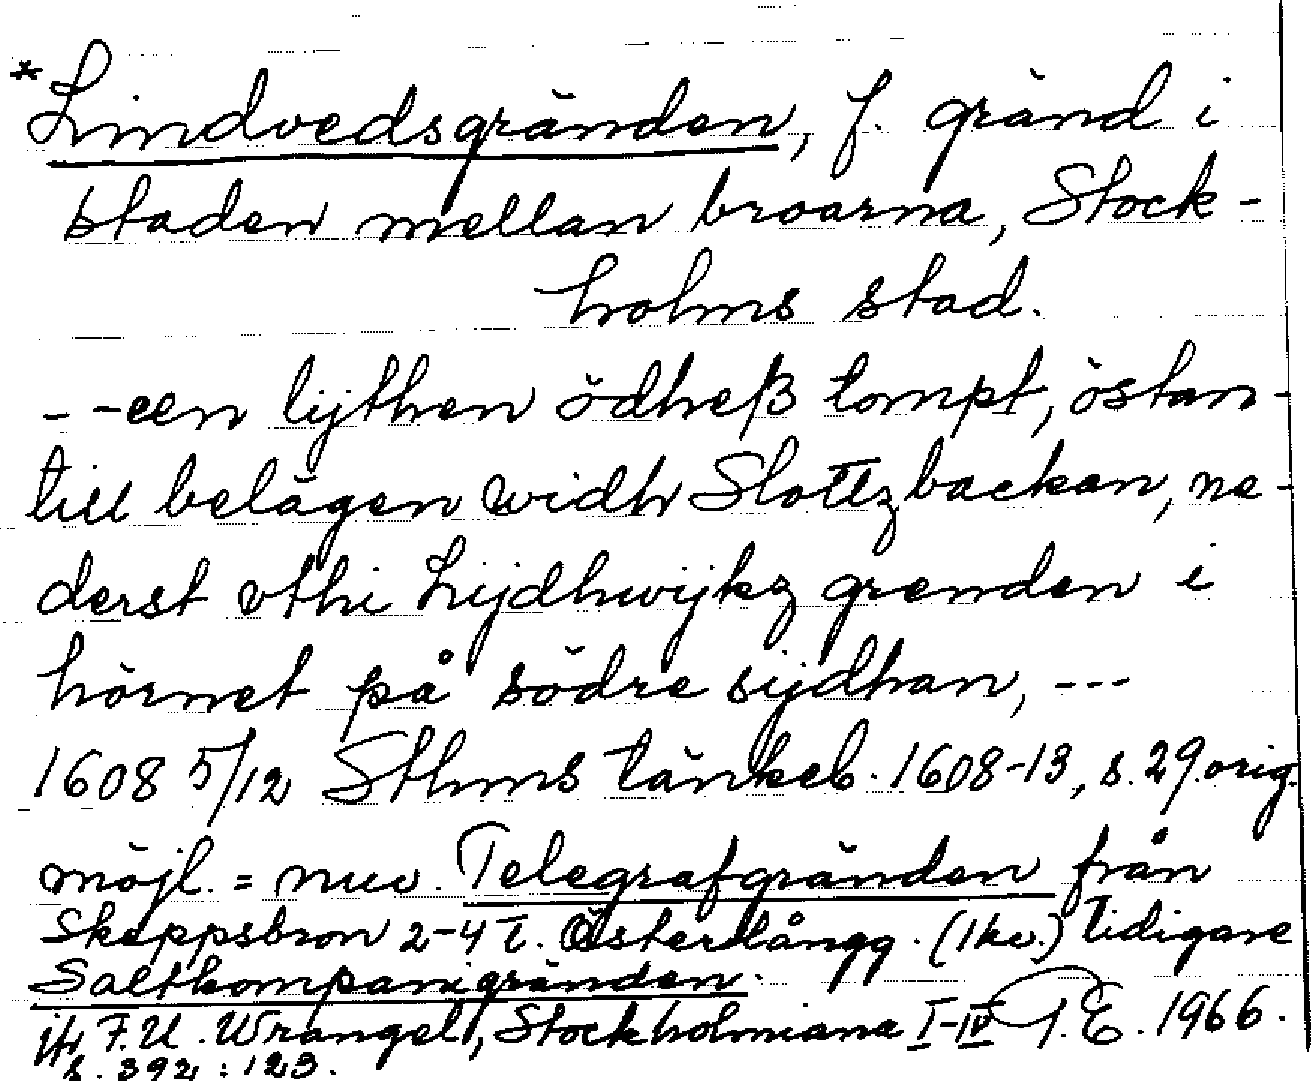 *Lindvedsgränden, f. gränd i
staden mellan broarna, Stock-
holms stad.
- -een lijthen ödheß tompt, östan-
till belägen widh Slottzbacken, ne-
derst vthi Lijdhwijkz grenden i
hörnet på södre sijdhan, ---
1608 5/12 Sthms tänkeb. 1608-13, s. 29. orig.
möjl. = nuv. Telegrafgränden från
Skeppsbron 2-4 t. Österlångg. (1 kv.) tidigare
Saltkompanigränden.
jfr F.U. Wrangel, Stockholmiana I-IV P.E. 1966.
s. 392 : 123.